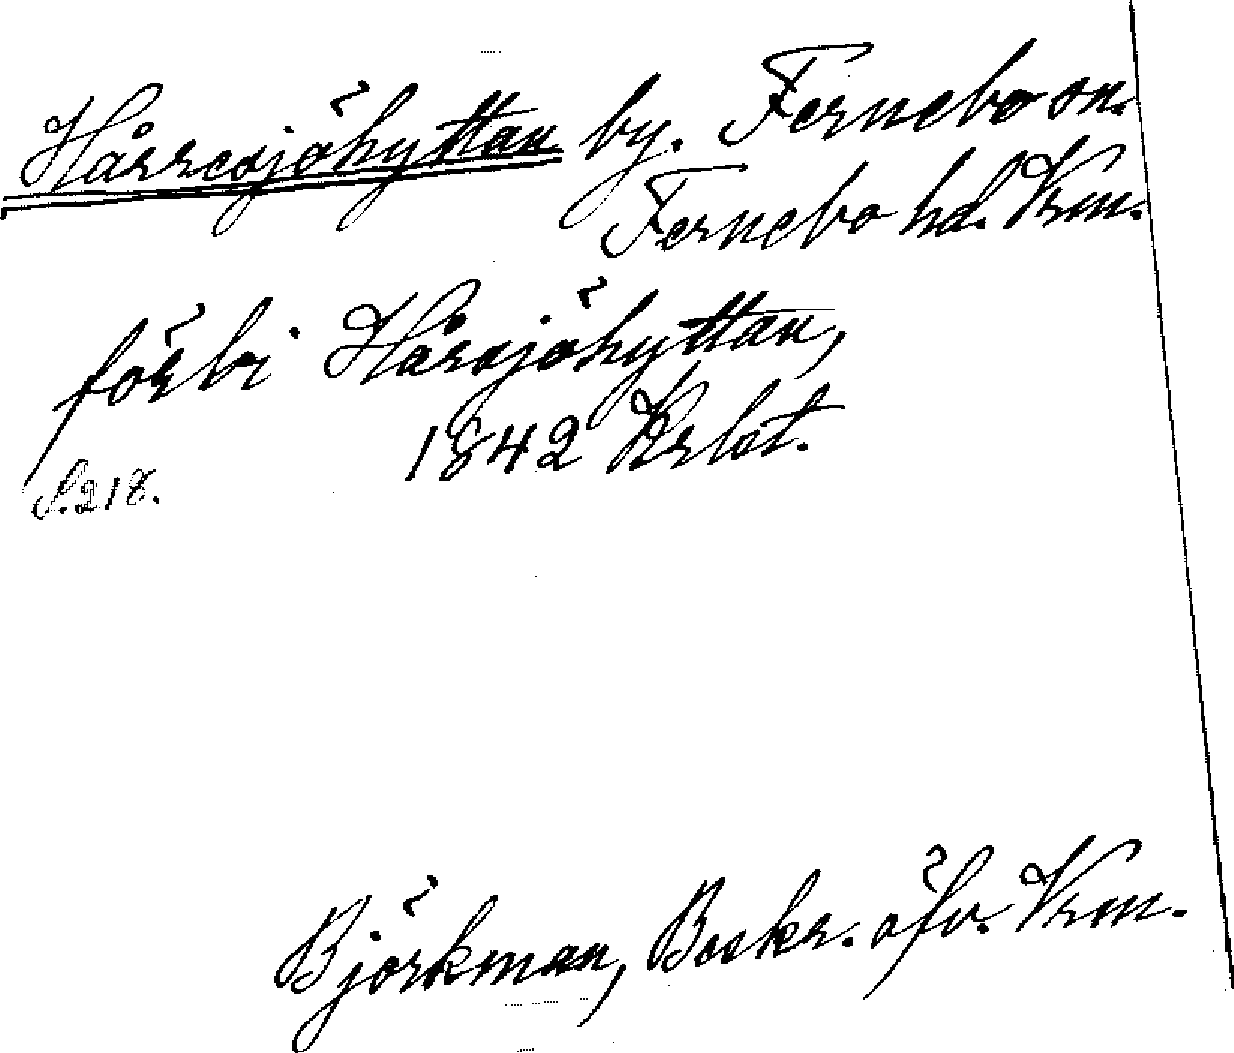 Hårresjöhyttan by. Fernebo sn.
Fernebo hd. Vrm.
förbi Hårsjöhyttan,
1842 Krlot.
S. 218.
Björkman, Beskr. öfv. Vrm.